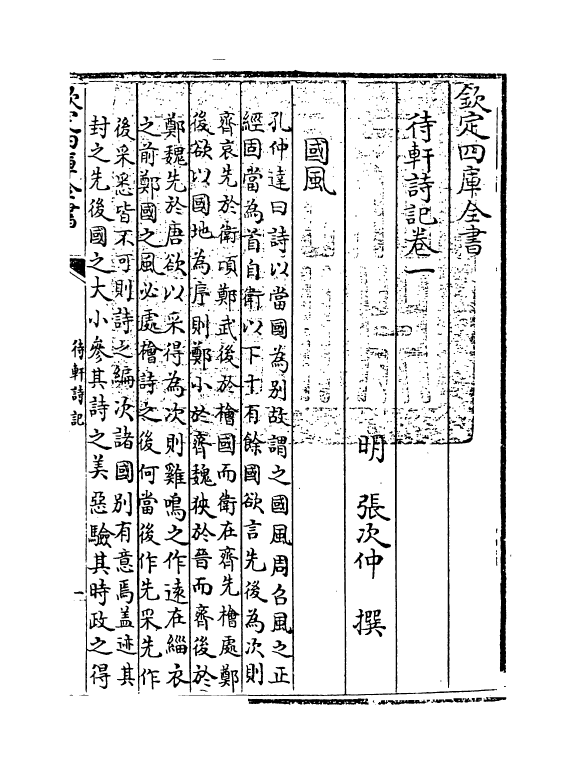 欽定四庫全書
待軒詩記卷一
明 張次仲 撰
國風
孔仲達曰詩以當國為別故謂之國風周召風之正
經固當為首自衛以下十有餘國欲言先後為次則
齊哀先於衛頃鄭武後於檜國而衛在齊先檜處鄭
後欲以國地為序則鄭小於齊魏狹於晉而齊後於
鄭魏先於唐欲以采得為次則雞鳴之作遠在緇衣
之前鄭國之風必處檜詩之後何當後作先采先作
後采悉皆不可則詩之編次諸國別有意焉蓋迹其
封之先後國之大小參其詩之美惡驗其時政之得
欽定四庫全書
待軒詩記
一